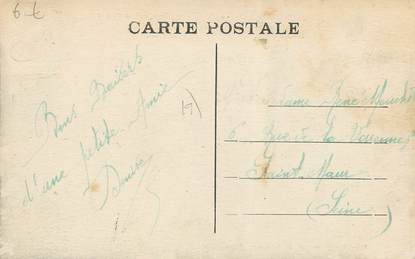 6 €
CARTE POSTALE
Bons Baisers
d'une petite Amie
Denise
17
Madame
6 Rue de la Varenne
Saint Maur
(Seine)